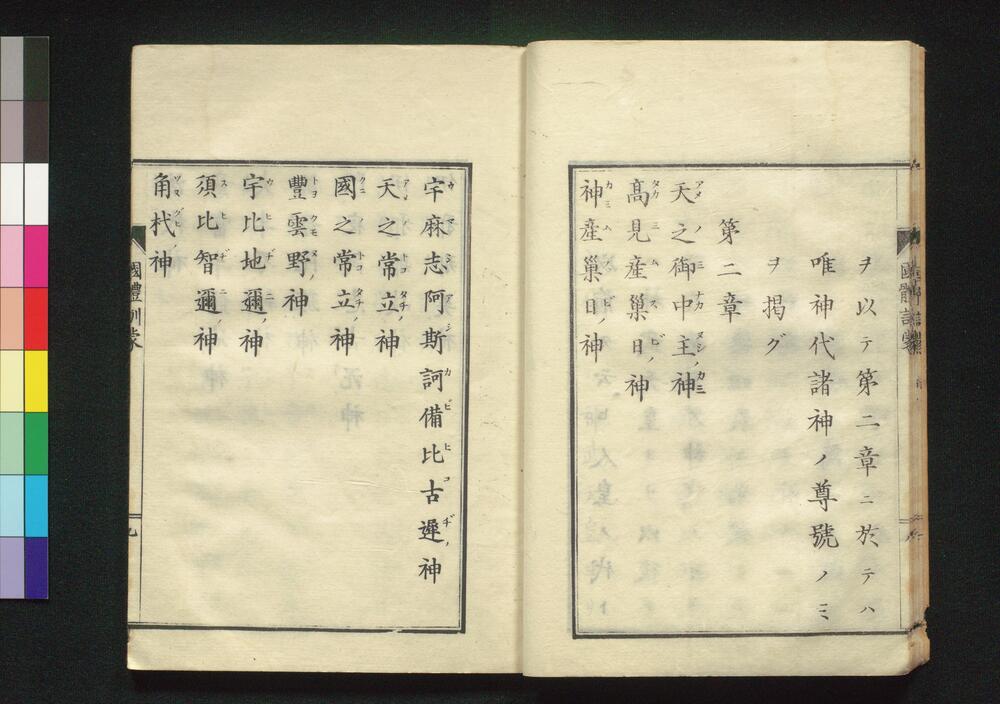 ヲ以テ第二章ニ於テハ
唯神代諸神ノ尊號ノミ
ヲ掲グ
第二章
天之御中主神
高見產巢日神
神產巢日神
宇麻志阿斯訶備比古遲神
天之常立神
國之常立神
豐雲野神
宇比地邇神
須比智邇神
角杙神
國體訓蒙
九